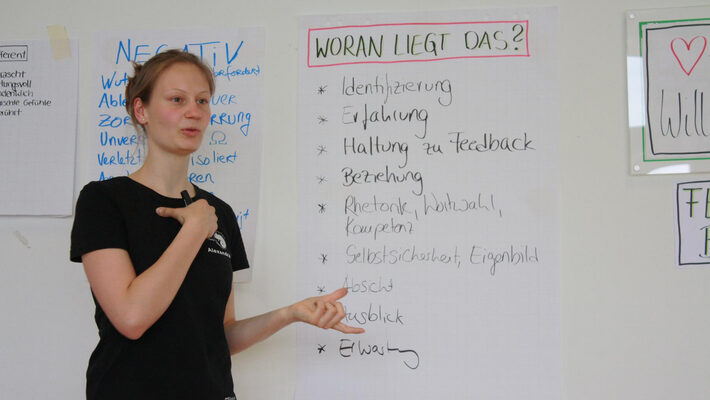 fferent
rascht
tungsvoll
schte Gefühle
rührt
NEGATIV
Wut
Able
ZOR
Unver
Verletz isoliert
WORAN LIEGT DAS?
* Identifizierung
* Erfahrung
* Haltung zu Feedback
* Beziehung
* Rhetorik, Wortwahl,
Kompetenz
* Selbstsicherheit, Eigenbild
* Absicht
Ausblick
* Erwartung
Will
FE